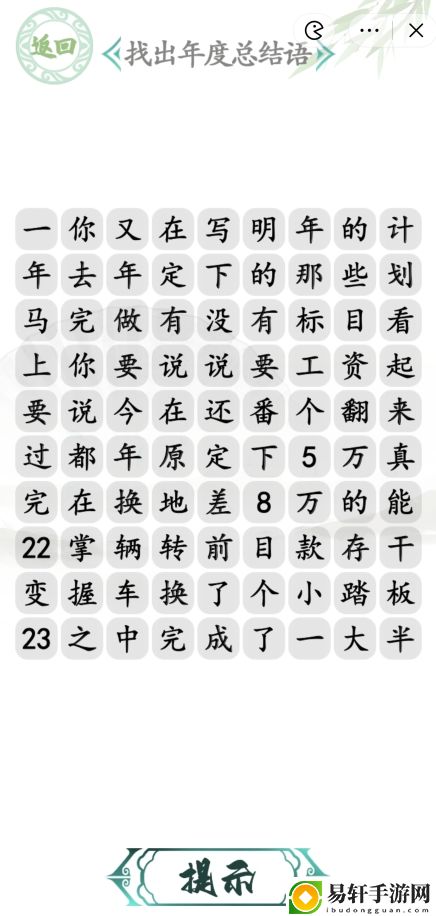 返回
找出年度总结语
一你又在写明年的计
年去年定下的那些划
马完做有没有标目看
上你要说说要工资起
要说今在还番个翻来
过都年原定下5万真
完在换地差8万的能
22掌辆转前目款存干
变握车换了个小踏板
23之中完成了一大半
提示
易轩手游网
ibudongguan.com